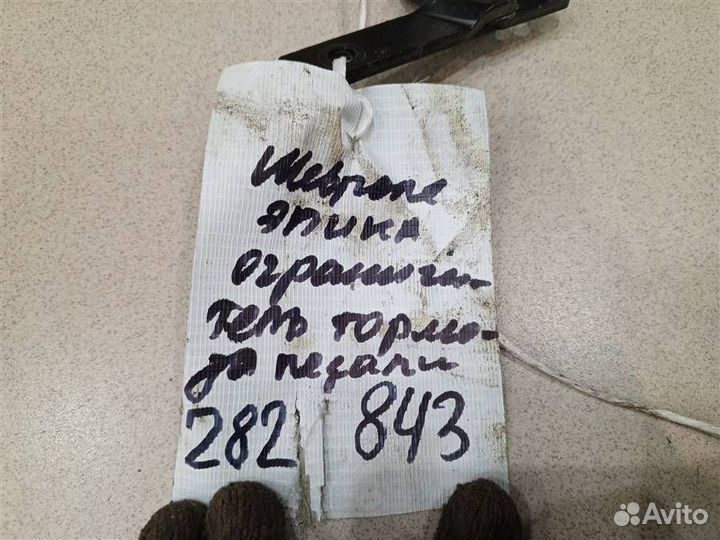 Шевроле
эпика
ограничи-
тель тормо-
за педали
282 843
Avito